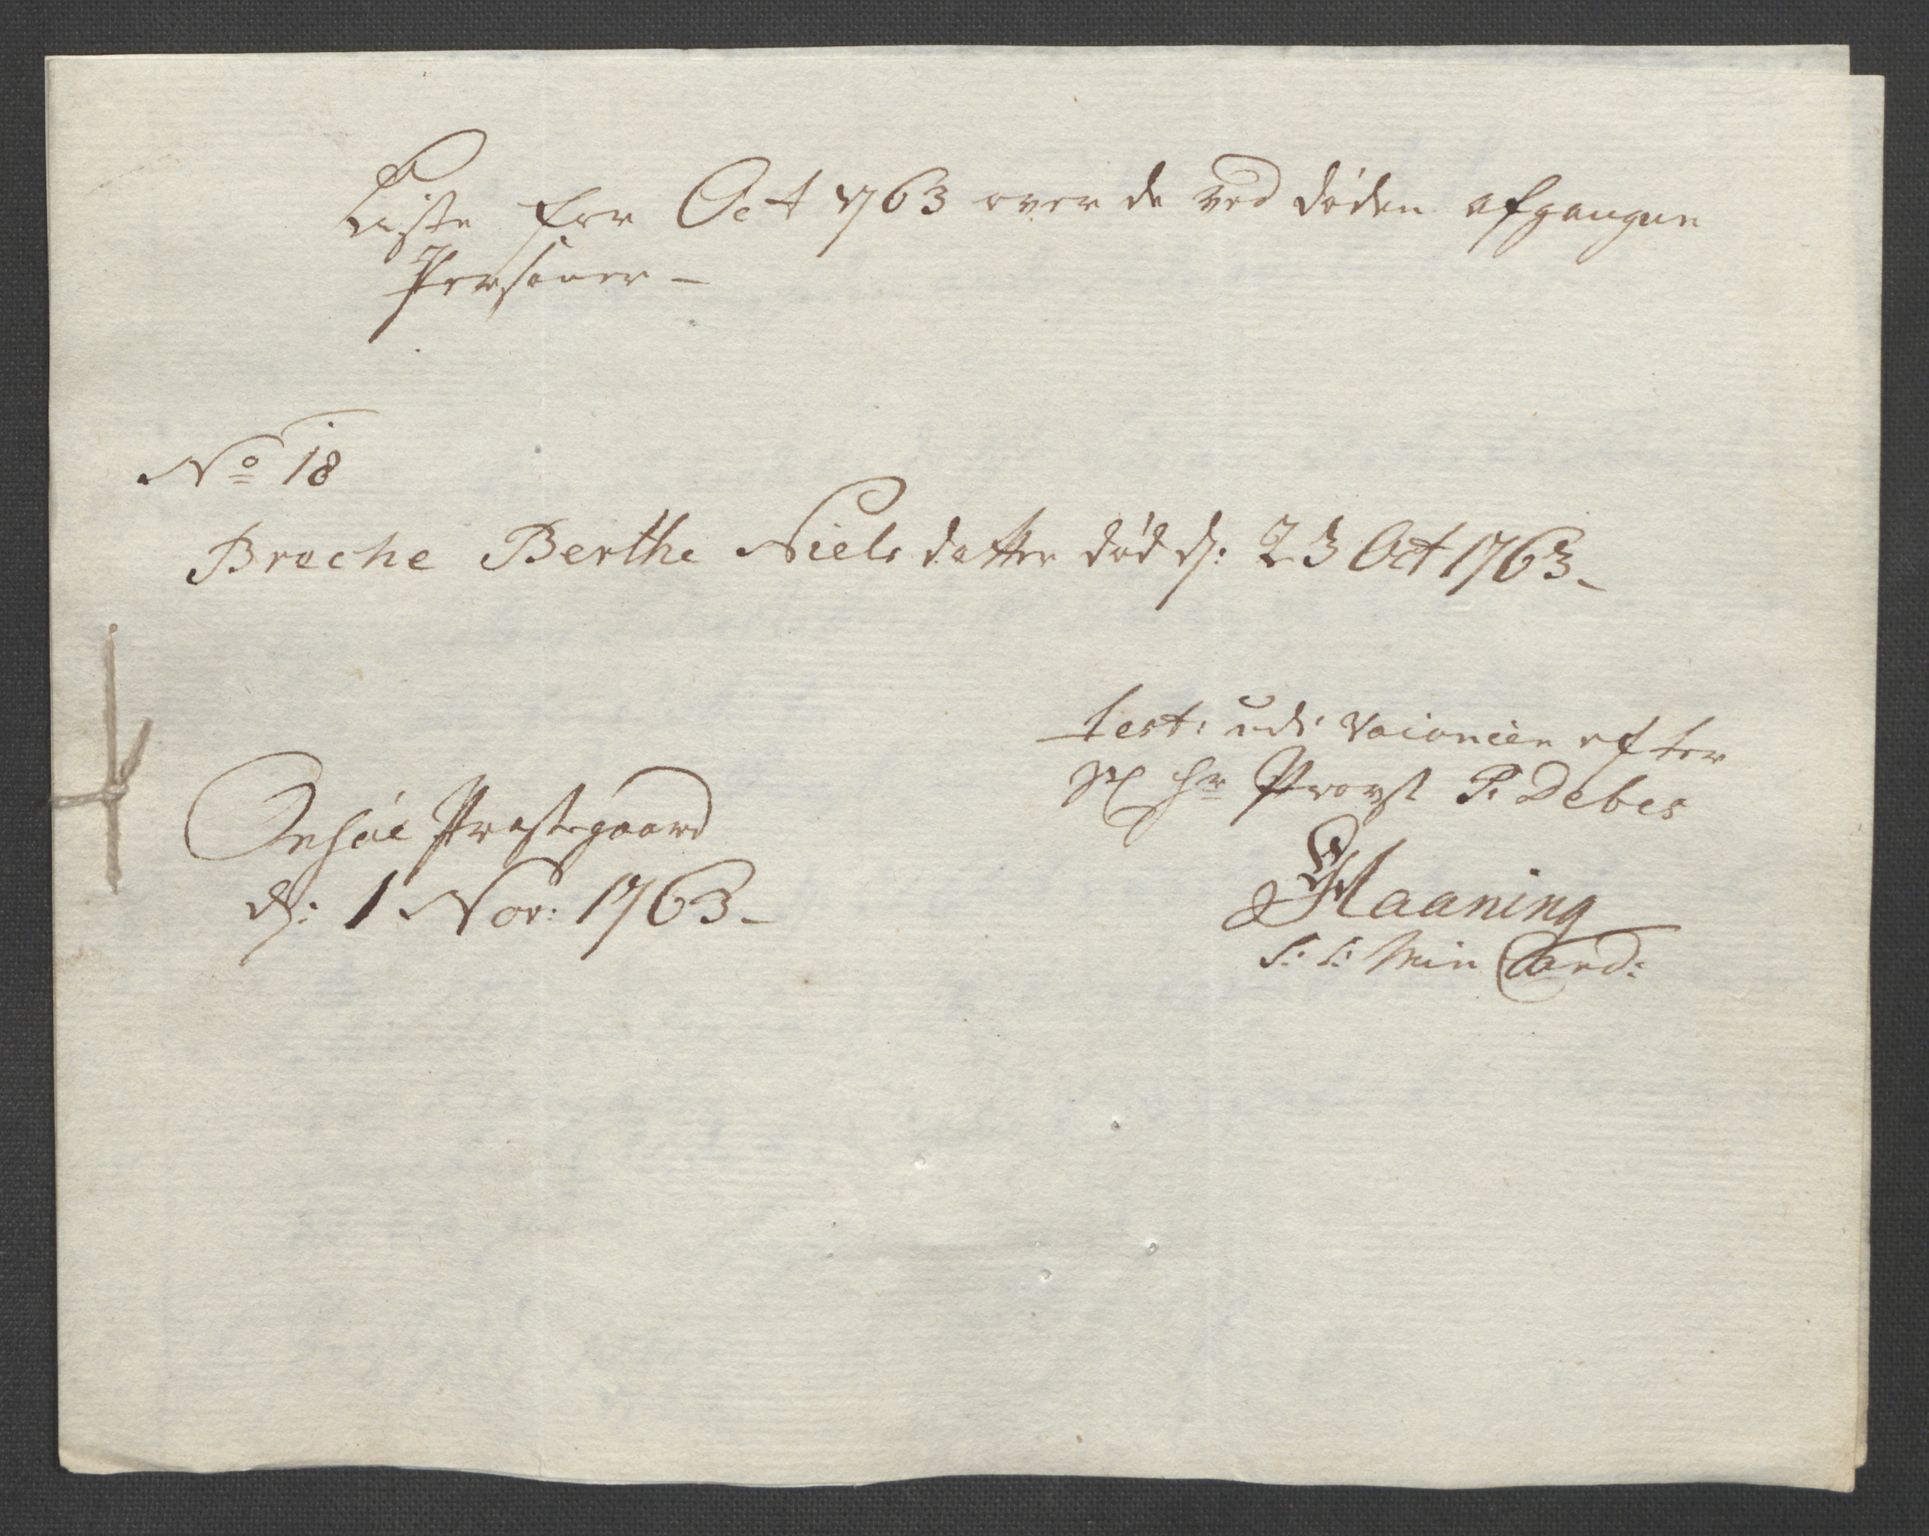 Liste for Oct 1763 over de ved døden afgangne
Personer –
No 18
Brache Berthe Nielsdatter død d: 23 Oct 1763 –
test: udi Vacancen efter
Sl Hr Provst P. Debes
Haaning
S: S: Min Cand:
Onsøe Præstegaard
d: 1 Nov: 1763 –